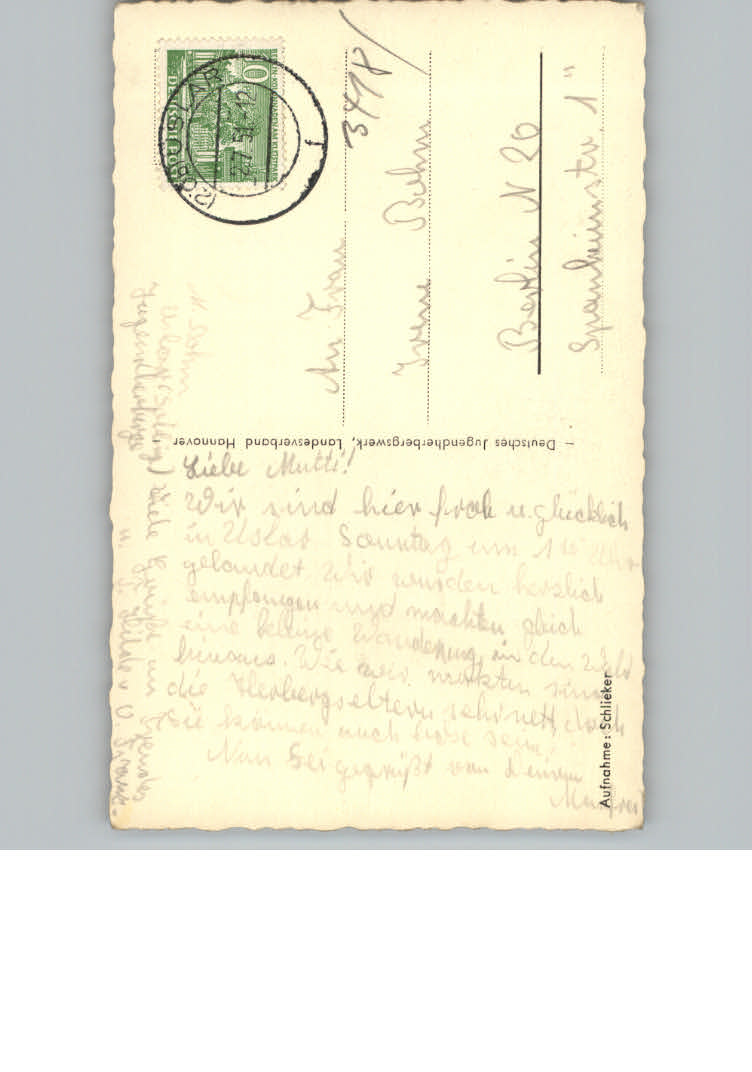 3418/
DEUTSCHE POST
10
(20b) USLAR
-2.7.51-12
f
An Frau
Irene Behm
Berlin N 20
Spanheimstr. 11
— Deutsches Jugendherbergswerk, Landesverband Hannover —
M. Behm
Uslar (Solling)
Jugendherberge
Liebe Mutti!
Wir sind hier froh u. glücklich
in Uslar Sonntag um 1 Uhr
gelandet. Wir wurden herzlich
empfangen und machten gleich
eine kleine Wanderung in den Wald
hinaus. Wie wir merkten sind
die Herbergseltern sehr nett, doch
sie können auch böse sein.
Nun sei gegrüßt von deinem
Manfred
Viele Grüße an
u. Hilde u. O. Frank.
Aufnahme: Schlieker